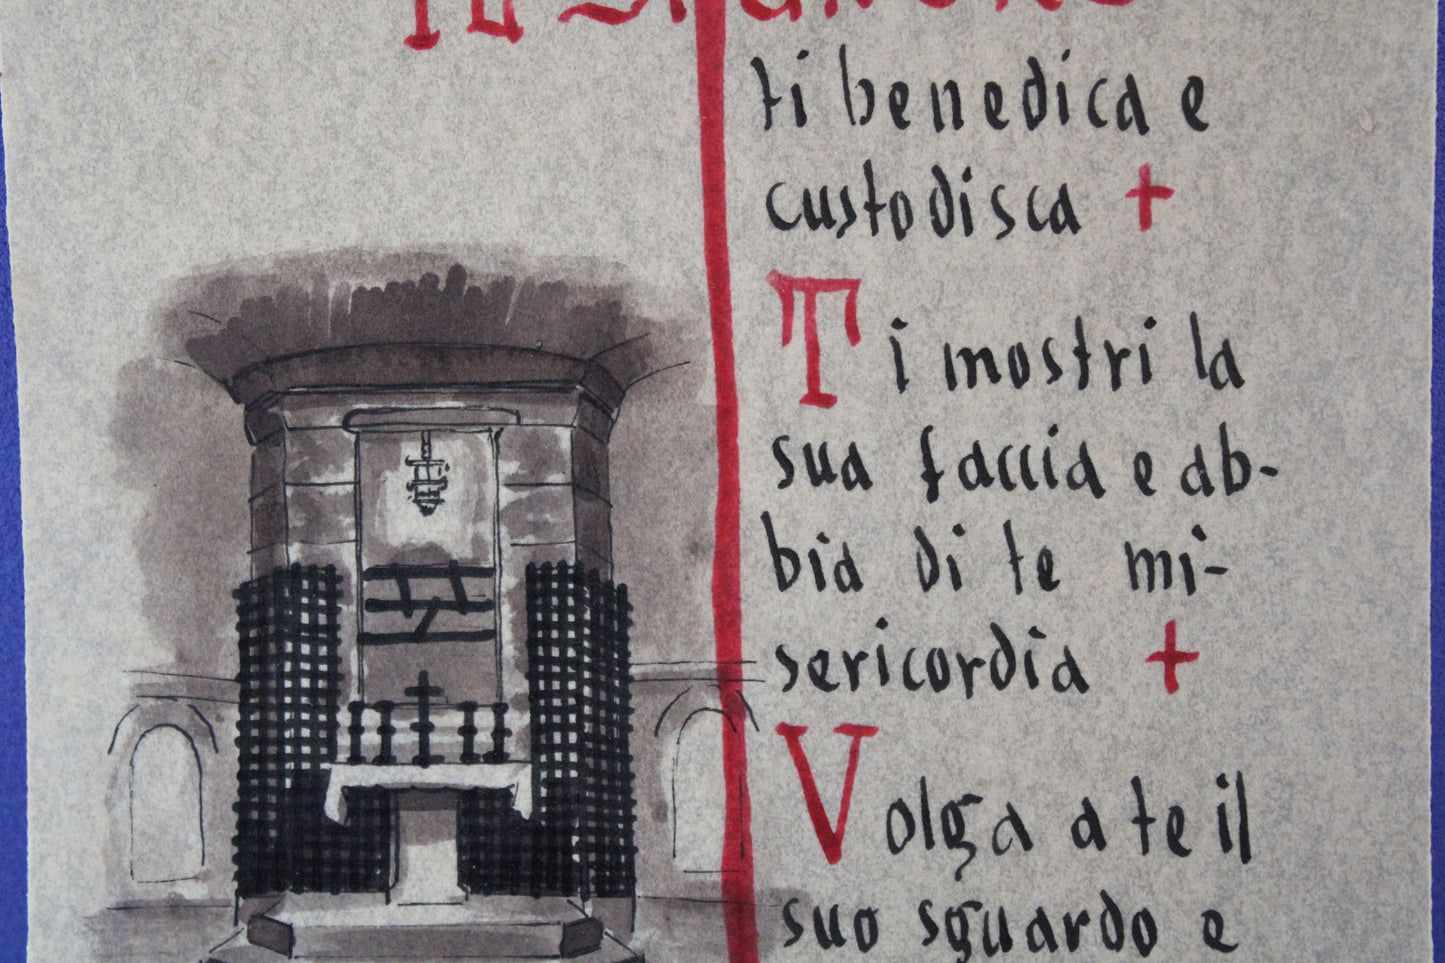 ti benedica e
custodisca +
Ti mostri la
sua faccia e ab-
bia di te mi-
sericordia +
Volga a te il
suo sguardo e